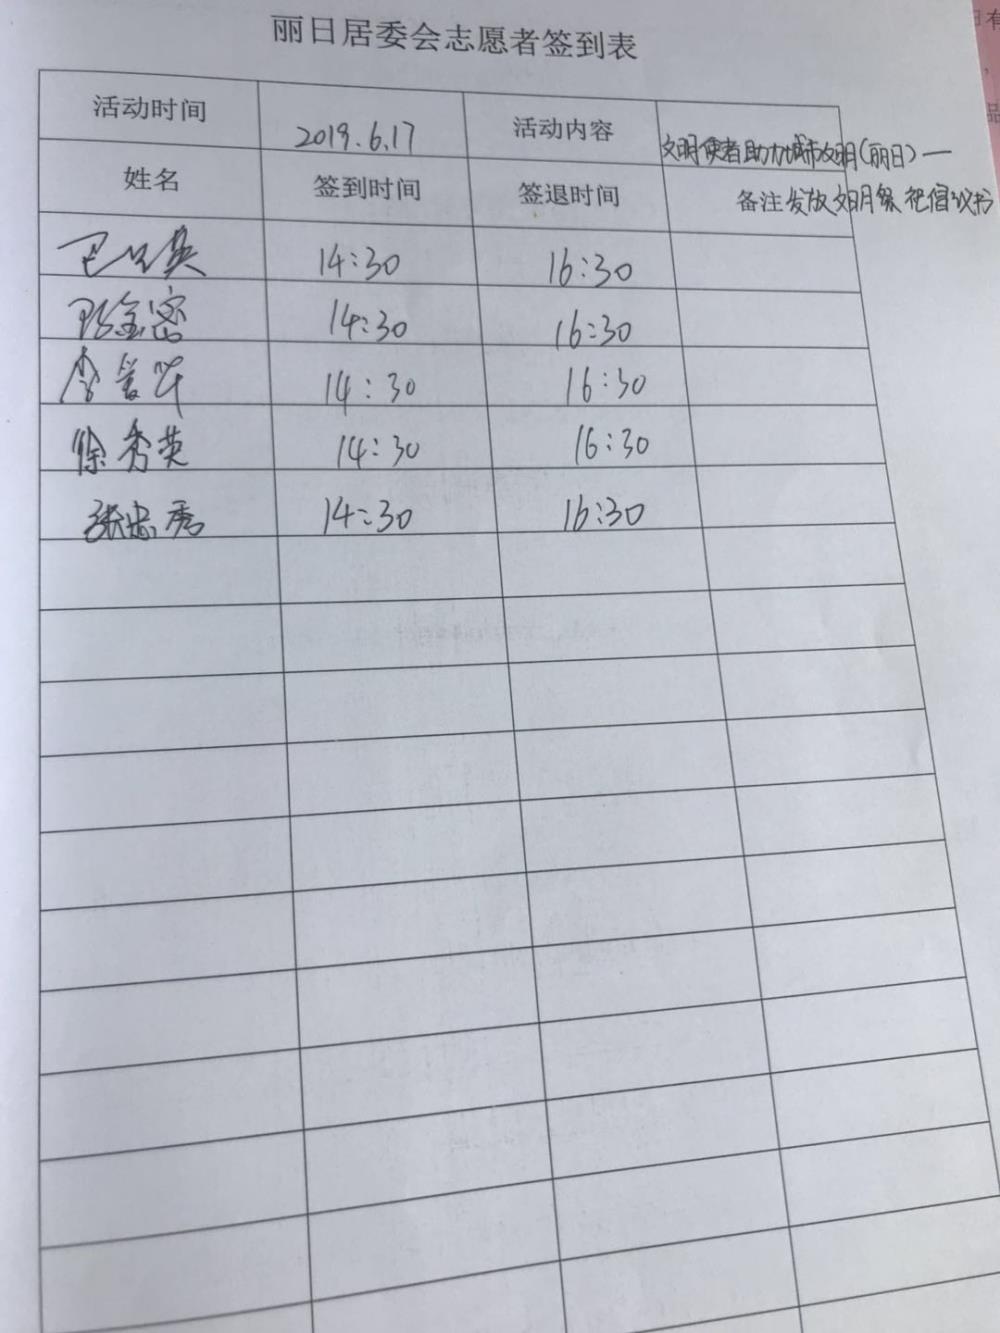 丽日居委会志愿者签到表
活动时间 2019.6.17 活动内容 文明使者助力城市文明(丽日)一
姓名 签到时间 签退时间 备注 发放文明祭祀倡议书
14:30 16:30
14:30 16:30
14:30 16:30
徐秀英 14:30 16:30
张忠秀 14:30 16:30